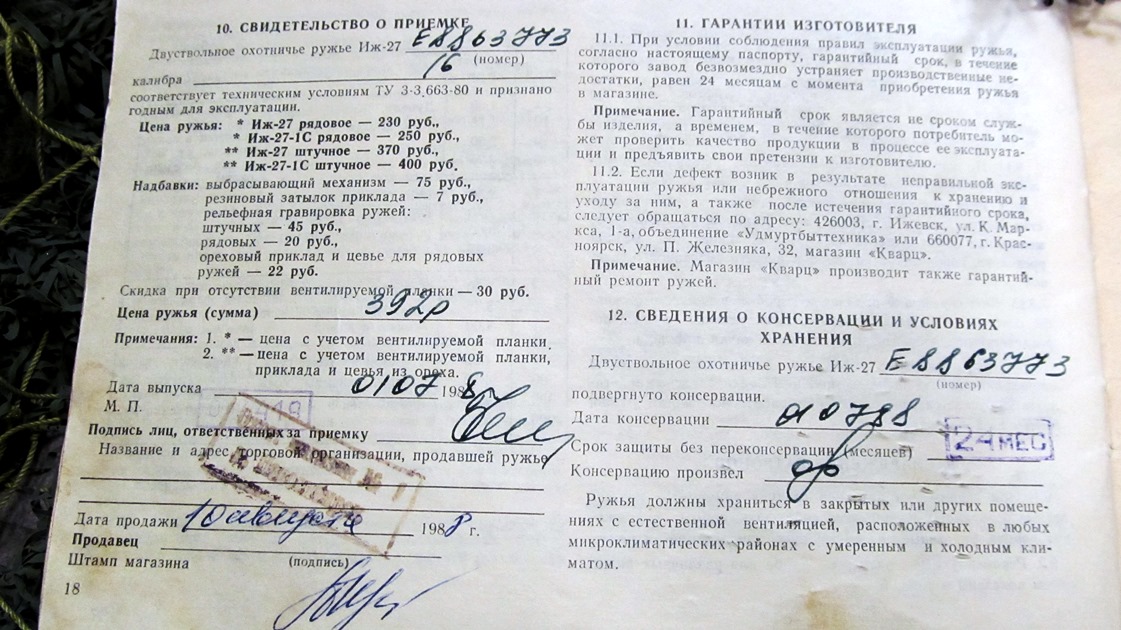 10. СВИДЕТЕЛЬСТВО О ПРИЕМКЕ
Двуствольное охотничье ружье Иж-27 Е8863773
(номер)
калибра 16
соответствует техническим условиям ТУ 3-3.663-80 и признано
годным для эксплуатации.
Цена ружья: * Иж-27 рядовое — 230 руб.,
* Иж-27-1С рядовое — 250 руб.,
** Иж-27 штучное — 370 руб.,
** Иж-27-1С штучное — 400 руб.
Надбавки: выбрасывающий механизм — 75 руб.,
резиновый затылок приклада — 7 руб.,
рельефная гравировка ружей:
штучных — 45 руб.,
рядовых — 20 руб.,
ореховый приклад и цевье для рядовых
ружей — 22 руб.
Скидка при отсутствии вентилируемой планки — 30 руб.
Цена ружья (сумма) 392р
Примечания: 1. * — цена с учетом вентилируемой планки.
2. ** — цена с учетом вентилируемой планки,
приклада и цевья из ореха.
Дата выпуска 0107 1988 г.
М. П.
Подпись лиц, ответственных за приемку
Название и адрес торговой организации, продавшей ружье
Дата продажи 10 августа 1988 г.
Продавец
(подпись)
Штамп магазина
18
11. ГАРАНТИИ ИЗГОТОВИТЕЛЯ
11.1. При условии соблюдения правил эксплуатации ружья,
согласно настоящему паспорту, гарантийный срок, в течение
которого завод безвозмездно устраняет производственные не-
достатки, равен 24 месяцам с момента приобретения ружья
в магазине.
Примечание. Гарантийный срок является не сроком служ-
бы изделия, а временем, в течение которого потребитель мо-
жет проверить качество продукции в процессе ее эксплуата-
ции и предъявить свои претензии к изготовителю.
11.2. Если дефект возник в результате неправильной экс-
плуатации ружья или небрежного отношения к хранению и
уходу за ним, а также после истечения гарантийного срока,
следует обращаться по адресу: 426003, г. Ижевск, ул. К. Мар-
кса, 1-а, объединение «Удмуртбыттехника» или 660077, г. Крас-
ноярск, ул. П. Железняка, 32, магазин «Кварц».
Примечание. Магазин «Кварц» производит также гарантий-
ный ремонт ружей.
12. СВЕДЕНИЯ О КОНСЕРВАЦИИ И УСЛОВИЯХ
ХРАНЕНИЯ
Двуствольное охотничье ружье Иж-27 Е8863773
(номер)
подвергнуто консервации.
Дата консервации 010788
Срок защиты без переконсервации (месяцев) 24 МЕС
Консервацию произвел
Ружья должны храниться в закрытых или других помеще-
ниях с естественной вентиляцией, расположенных в любых
микроклиматических районах с умеренным и холодным кли-
матом.